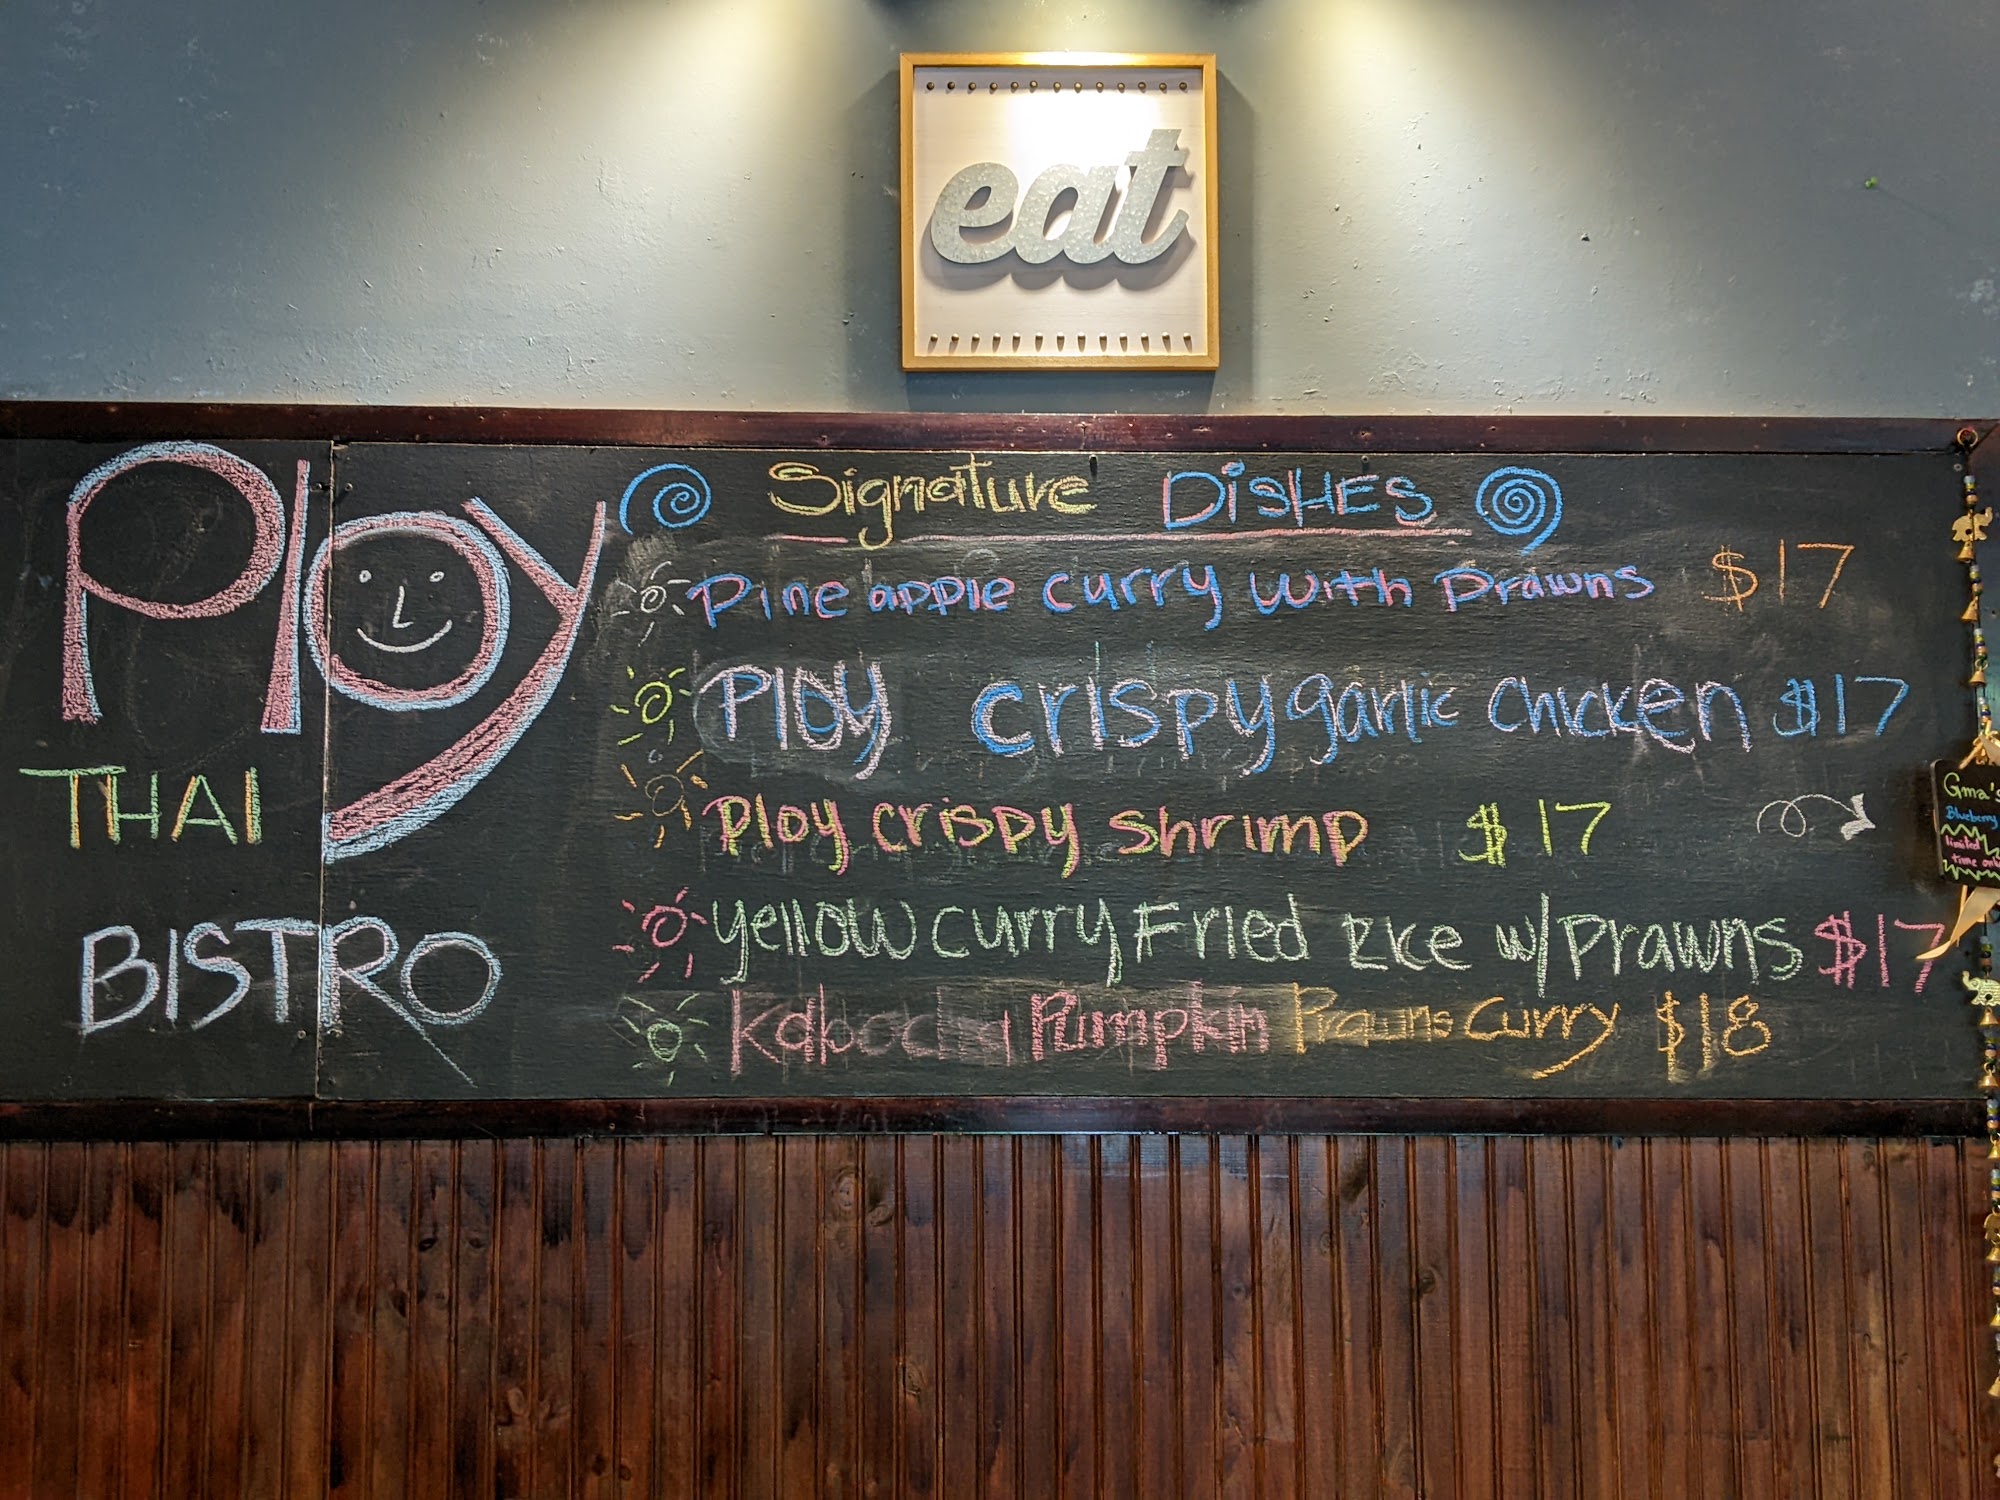 eat
Ploy
THAI
BISTRO
Signature DiSHES
Pineapple curry with prawns $17
Ploy crispy garlic chicken $17
Ploy crispy shrimp $17
yellow curry Fried Rice w/ prawns $17
Kabocha Pumpkin Prawns Curry $18
Gma's
Blueberry
limited
time only